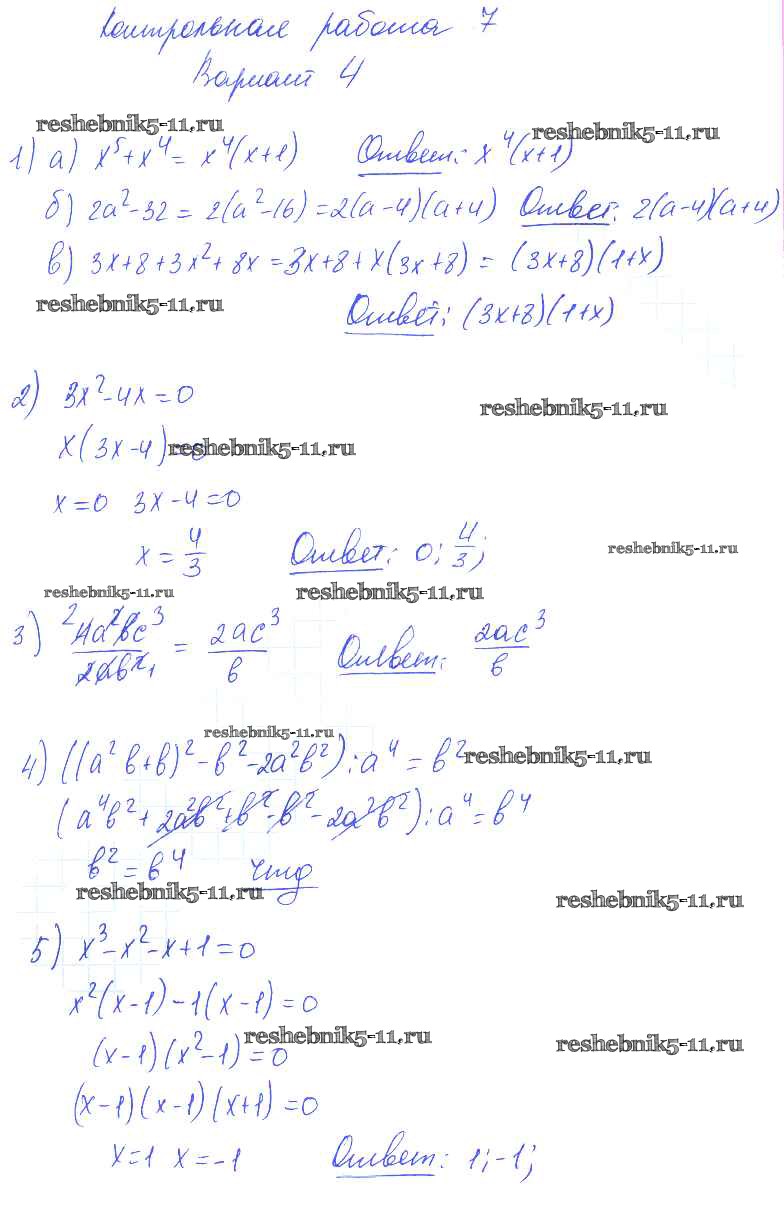 Контрольная работа 7
Вариант 4
reshebnik5-11.ru
reshebnik5-11.ru
1) а) x⁵+x⁴= x⁴(x+1) Ответ: x⁴(x+1)
б) 2a²-32 = 2(a²-16)=2(a-4)(a+4) Ответ: 2(a-4)(a+4)
в) 3x+8+3x²+8x=3x+8+x(3x+8) = (3x+8)(1+x)
reshebnik5-11.ru
Ответ: (3x+8)(1+x)
2) 3x²-4x=0
reshebnik5-11.ru
x(3x-4) reshebnik5-11.ru
x=0 3x-4=0
x = 4/3 Ответ: 0; 4/3;
reshebnik5-11.ru
reshebnik5-11.ru
reshebnik5-11.ru
3) ²4a²bc³/2ab²₁ = 2ac³/b Ответ: 2ac³/b
reshebnik5-11.ru
4) ((a²b+b)²-b²-2a²b²):a⁴ = b² reshebnik5-11.ru
(a⁴b²+2a²b²+b²-b²-2a²b²):a⁴=b⁴
b²=b⁴ чтд
reshebnik5-11.ru
reshebnik5-11.ru
5) x³-x²-x+1=0
x²(x-1)-1(x-1)=0
reshebnik5-11.ru
(x-1)(x²-1)=0
reshebnik5-11.ru
(x-1)(x-1)(x+1)=0
x=1 x=-1 Ответ: 1;-1;